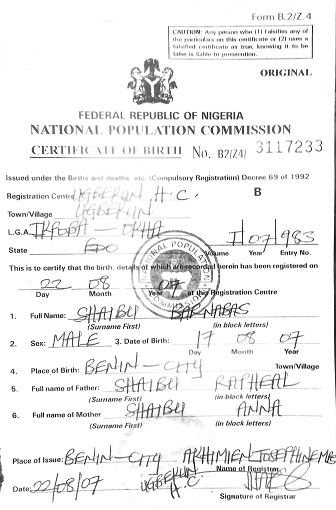 Form B.2/Z.4
CAUTION: Any person who (1) Falsifies any of
the particulars on this certificate or (2) uses a
falsified certificate as true, knowing it to be
false is liable to prosecution.
ORIGINAL
FEDERAL REPUBLIC OF NIGERIA
NATIONAL POPULATION COMMISSION
CERTIFICATE OF BIRTH No. B2/Z4/ 3117233
Issued under the Births and deaths, etc. (Compulsory Registration) Decree 69 of 1992
Registration Centre UGBEKUN H.C. B
Town/Village UGBEKUN
L.G.A. IKPOBA - OKHA I 07 983
State EDO Volume Year Entry No.
NATIONAL POPULATION
This is to certify that the birth, details of which are recorded herein has been registered on
22 08 07 at this Registration Centre
Day Month Year
1. Full Name: SHAIBU BARNABAS
(Surname First) (in block letters)
2. Sex: MALE 3. Date of Birth: 17 08 07
Day Month Year
4. Place of Birth: BENIN - CITY Town/Village
5. Full name of Father: SHAIBU RAPHEAL
(Surname First) (in block letters)
6. Full name of Mother SHAIBU ANNA
(Surname First) (in block letters)
Place of Issue: BENIN - CITY AKHIMIEN JOSEPHINE
Name of Registrar
Date: 22/08/07 UGBEKUN H.C.
Signature of Registrar